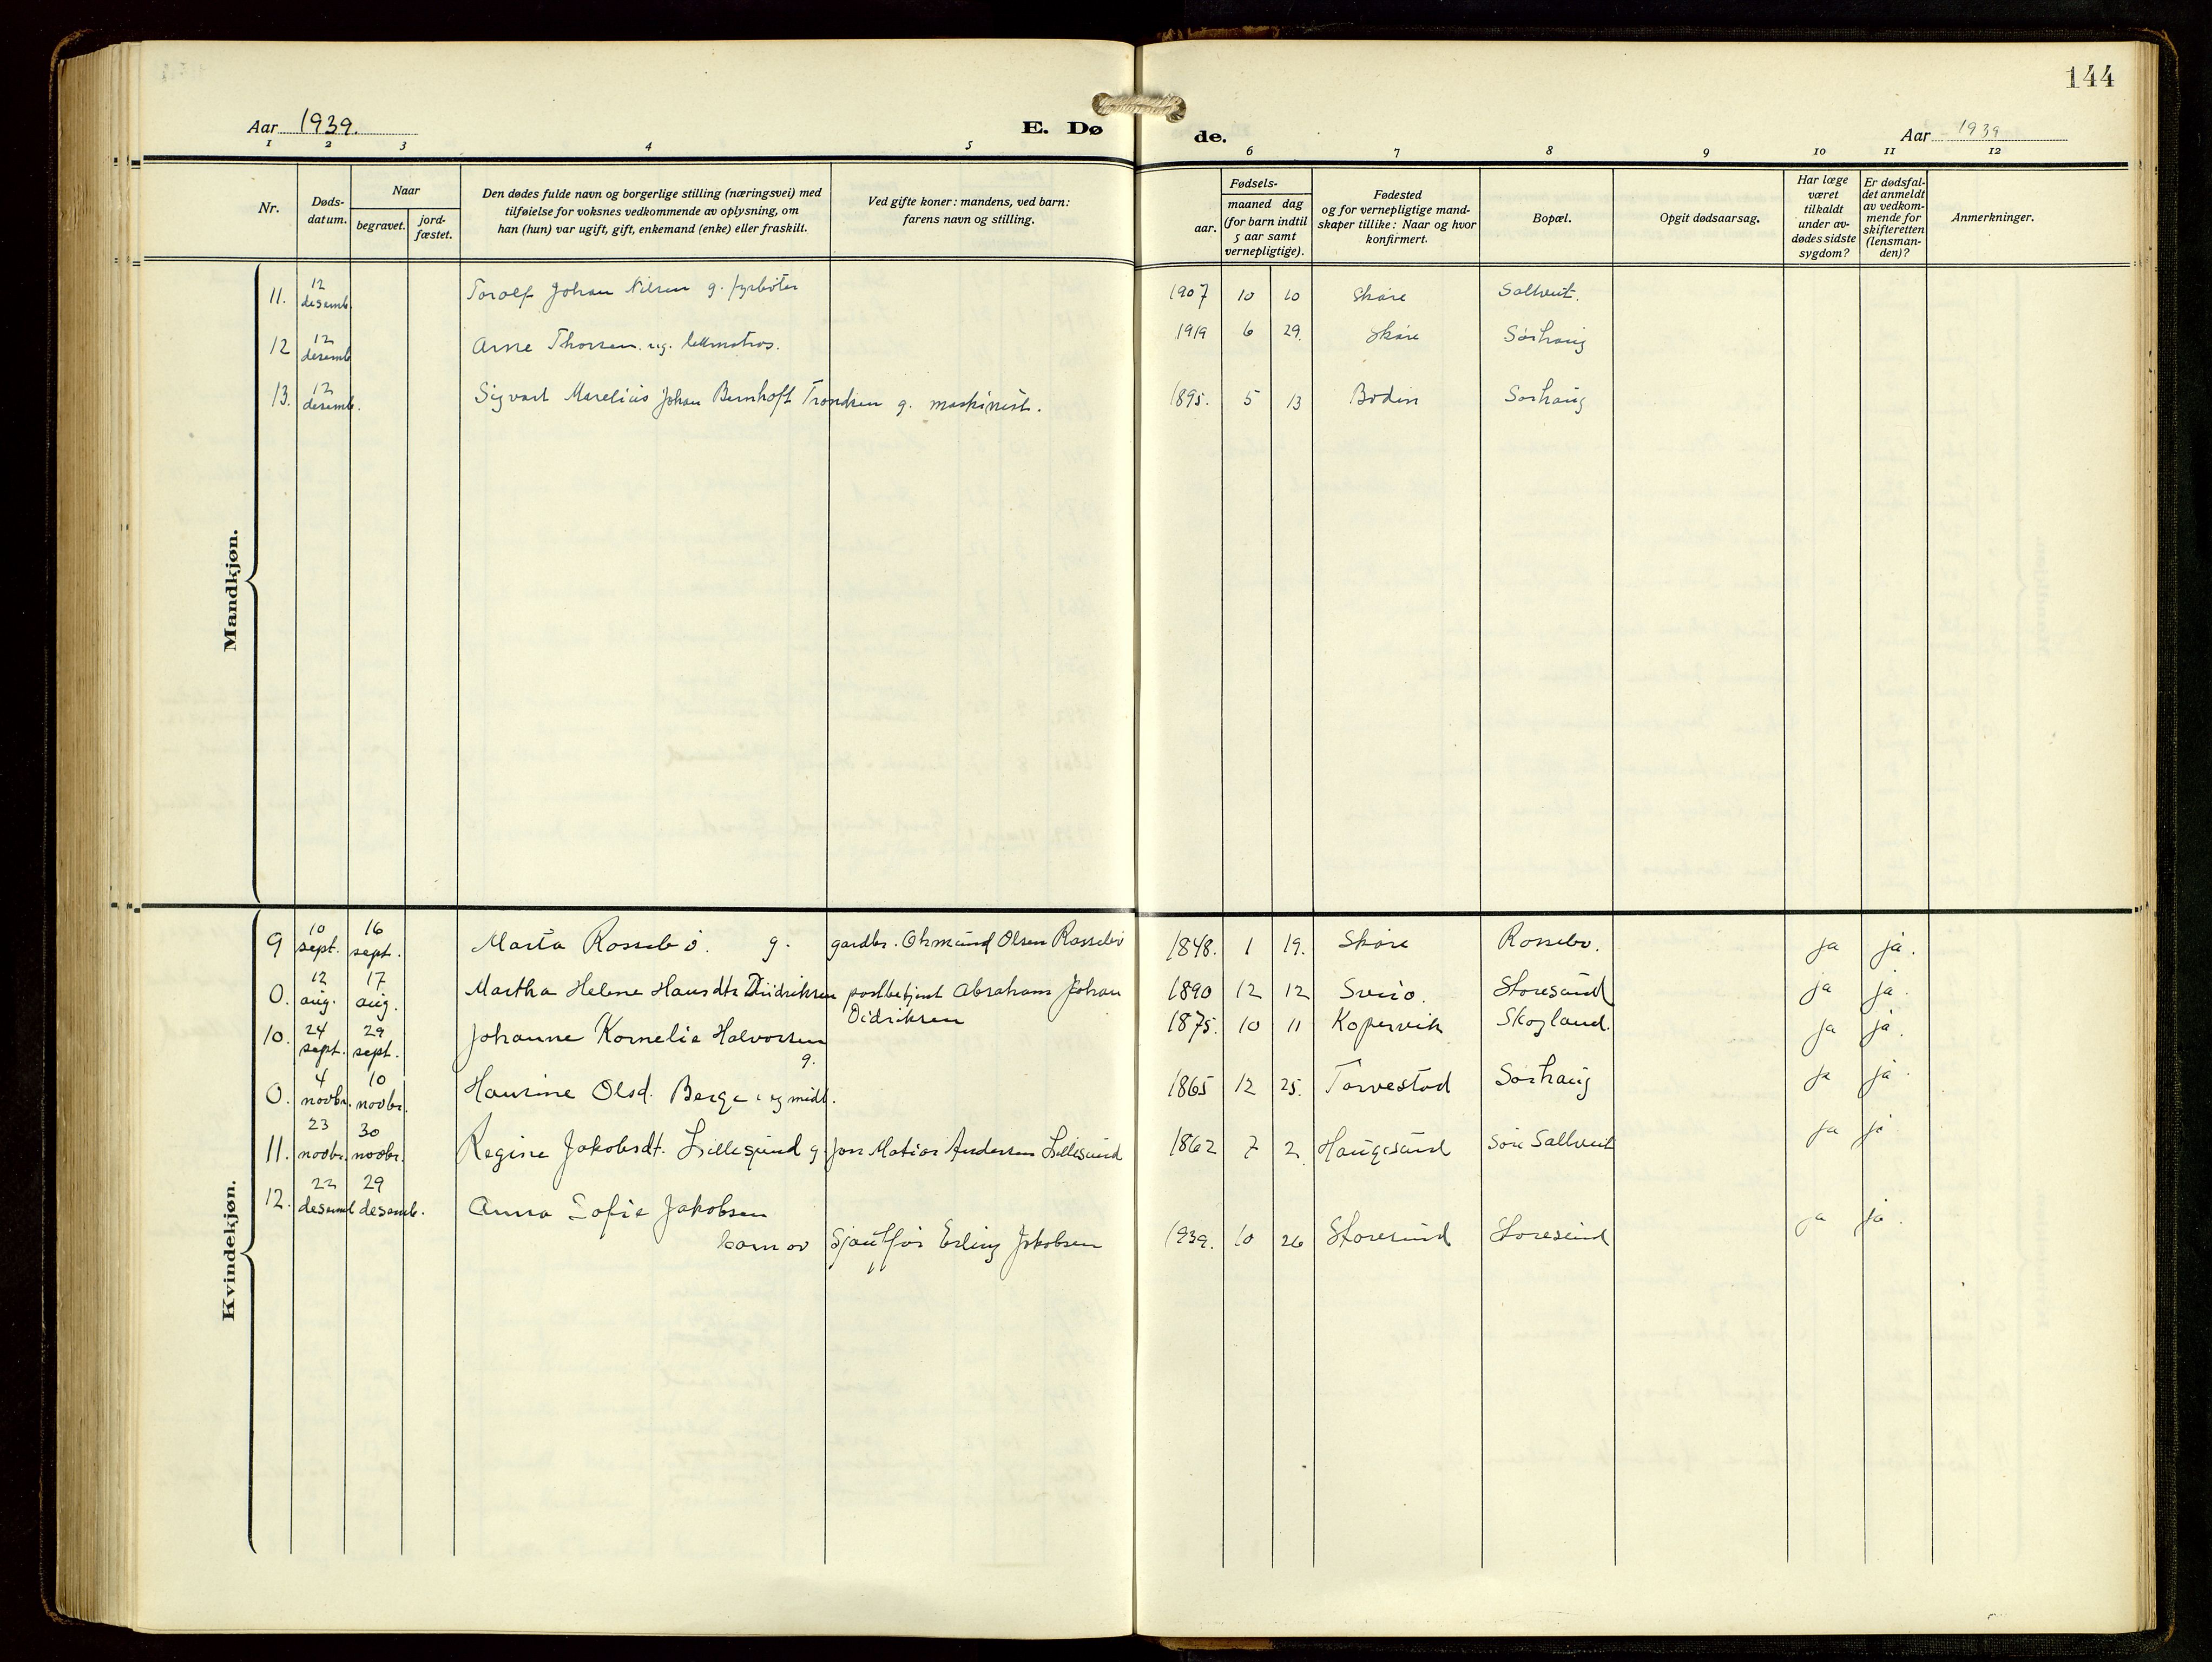 144
Aar 1939.
E. Dø de.
Aar 1939
1 2 3 4 5 6 7 8 9 10 11 12
Nr.
Døds-
datum.
Naar
begravet.
jord-
fæstet.
Den dødes fulde navn og borgerlige stilling (næringsvei) med
tilføielse for voksnes vedkommende av oplysning, om
han (hun) var ugift, gift, enkemand (enke) eller fraskilt.
Ved gifte koner: mandens, ved barn:
farens navn og stilling.
Fødsels-
aar.
maaned dag
(for barn indtil
5 aar samt
vernepligtige).
Fødested
og for vernepligtige mand-
skaper tillike: Naar og hvor
konfirmert.
Bopæl.
Opgit dødsaarsag.
Har læge
været
tilkaldt
under av-
dødes sidste
sygdom?
Er dødsfal-
det anmeldt
av vedkom-
mende for
skifteretten
(lensman-
den)?
Anmerkninger.
Mandkjøn.
11. 12 desemb. Torolf Johan Nilsen g. fyrbøter 1907 10 10 Skåre Saltveit.
12 12 desemb Arne Thorsen. ug. lettmatros. 1919 6 29. Skåre Sørhaug
13. 12 desemb. Sigvart Marelius Johan Bernhoft Trondsen g. maskinist. 1895. 5 13 Bodin Sørhaug
Kvindekjøn.
9 10 sept. 16 sept. Marta Rossebø. g. gardbr. Osmund Olsen Rossebø 1848. 1 19. Skåre Rossebø. ja ja.
0. 12 aug. 17 aug. Martha Helene Hansdtr Didriksen postbetjent Abraham Johan 1890 12 12 Sveio. Storesund ja ja.
Didriksen
10. 24 sept. 29 sept. Johanne Kornelie Halvorsen 1875. 10 11 Kopervik Skogland. ja ja.
g.
0. 4 novbr. 10 novbr. Hansine Olsd. Berge 1865 12 25. Torvestad Sørhaug ja ja.
11. 23 novbr. 30 novbr. Regine Jakobsdt. Lillesund g. Matias Andersen Lillesund 1862 7 2. Haugesund Søre Saltveit ja ja
12. 22 desemb 29 desemb. Anna Sofie Jakobsen
barn av Sjauffør Erling Jakobsen 1939. 10 26 Storesund Storesund ja ja.